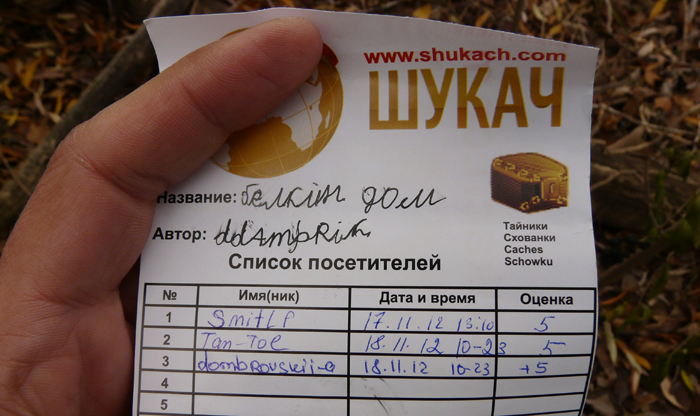 www.shukach.com
ШУКАЧ
Название: белкін дом
Автор:
Тайники
Схованки
Caches
Schowku
Список посетителей
№ Имя(ник) Дата и время Оценка
1 SmitLP 17.11.12 13:10 5
2 Tan-Tol 18.11.12 10-23 5
3 dombrovskii-a 18.11.12 10-23 +5
4
5